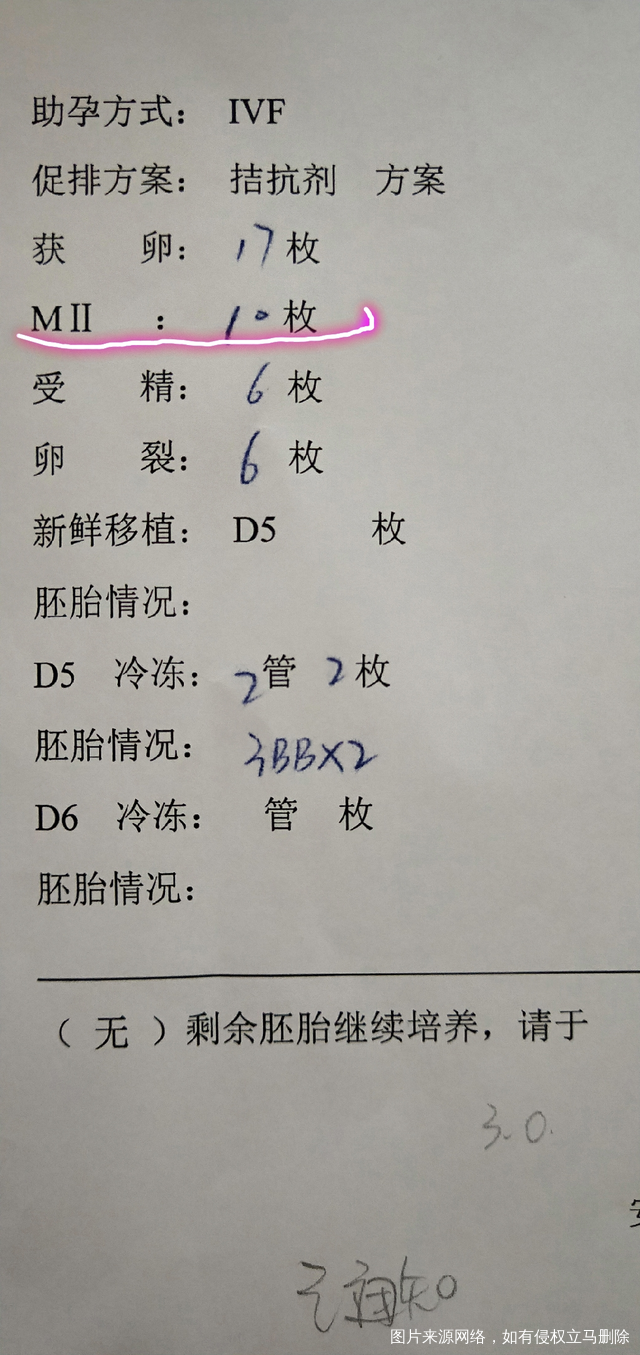 助孕方式： IVF
促排方案： 拮抗剂 方案
获 卵： 17 枚
MⅡ ： 10 枚
受 精： 6 枚
卵 裂： 6 枚
新鲜移植： D5 枚
胚胎情况：
D5 冷冻： 2管 2枚
胚胎情况： 3BB×2
D6 冷冻： 管 枚
胚胎情况：
（ 无 ）剩余胚胎继续培养，请于
3.0.
已通知
图片来源网络，如有侵权立马删除